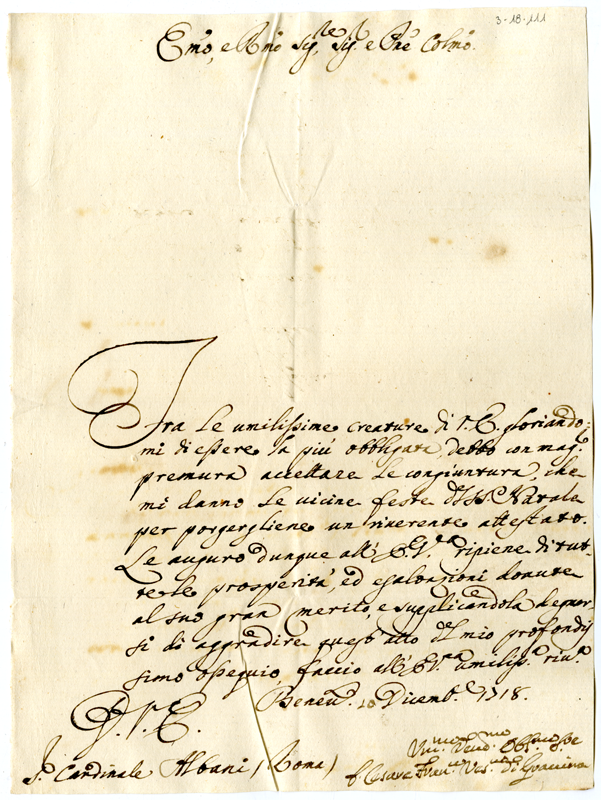 3-18-111
Emo, e Rmo Sigre, Sigr e Pne Colmo.
Tra le umilissime creature di V.E. gloriando-
mi di essere la più obbligata, debbo con mag.e
premura accettare le congiunture, che
mi danno le vicine feste del SS. Natale
per porgergliene un riverente attestato.
Le auguro dunque all' E.V.ra ripiene di tut-
te le prosperità, ed esaltazioni dovute
al suo gran merito, e supplicandola degnar-
si di aggradire quest' atto del mio profondis-
simo ossequio, faccio all' E.V.ra umilis.a riv.a
Benev. 10 Dicemb.e 1718.
D. V. E.
S.r Cardinale Albani (Roma)
Um.mo Dev.mo Obl.mo
f. Cesare Fran.co Ves.vo di Gravina